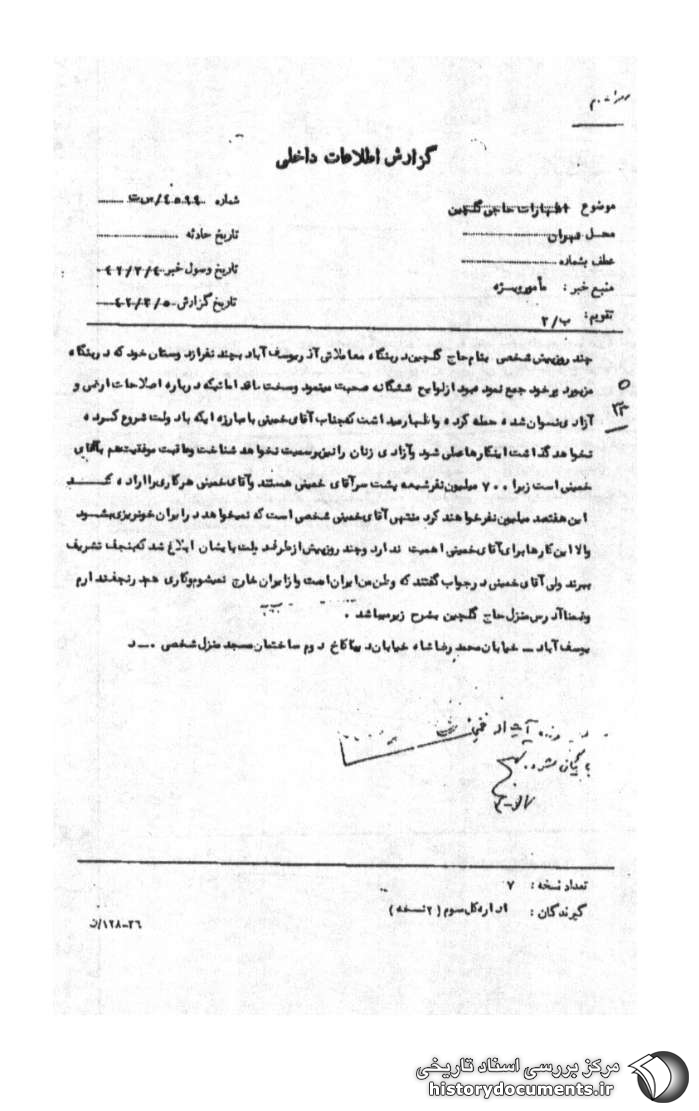 گزارش اطلاعات داخلی
موضوع اظهارات حاجی گلچین
شماره ٤٥٩٩/س ت
محل تهران
تاریخ حادثه
عطف بشماره
تاریخ وصول خبر ٤٢/٣/٤
منبع خبر : مأمور ویژه
تاریخ گزارش ٤٢/٣/٥
تقویم : ب/٢
چند روز پیش شخصی بنام حاج گلچین در بنگاه معاملاتی آذر یوسف آباد بچند نفر از دوستان خود که در بنگاه
مزبور د ور خود جمع نموده بود از لوایح ششگانه صحبت مینمود و سخت به اقداماتیکه درباره اصلاحات ارضی و
آزادی نسوان شده حمله کرده و اظهار میداشت که جناب آقای خمینی با مبارزه ایکه با دولت شروع کرده
نخواهد گذاشت اینکارها عملی شود و آزادی زنان را نیز برسمیت نخواهد شناخت و عاقبت موفقیت هم با آقای
خمینی است زیرا ٧٠٠ میلیون نفر شیعه پشت سر آقای خمینی هستند و آقای خمینی هر کاری را اراده کند
این هفتصد میلیون نفر خواهند کرد منتهی آقای خمینی شخصی است که نمیخواهد در ایران خونریزی بشود
والا این کارها برای آقای خمینی اهمیت ندارد و چند روز پیش از طرف دولت بایشان ابلاغ شد که بنجف تشریف
ببرند ولی آقای خمینی در جواب گفتند که وطن من ایران است و از ایران خارج نمیشوم و کاری هم در نجف ندارم
و ضمناً آدرس منزل حاج گلچین بشرح زیر میباشد .
یوسف آباد - خیابان محمد رضا شاه خیابان دیبا کاخ دوم ساختمان مسجد منزل شخصی .- د
٥
٢٣
بایگانی شود
تعداد نسخه : ٧
گیرندگان : اداره کل سوم ( ٢ نسخه )
٣٦-١٢٨/ن
مرکز بررسی اسناد تاریخی
historydocuments.ir